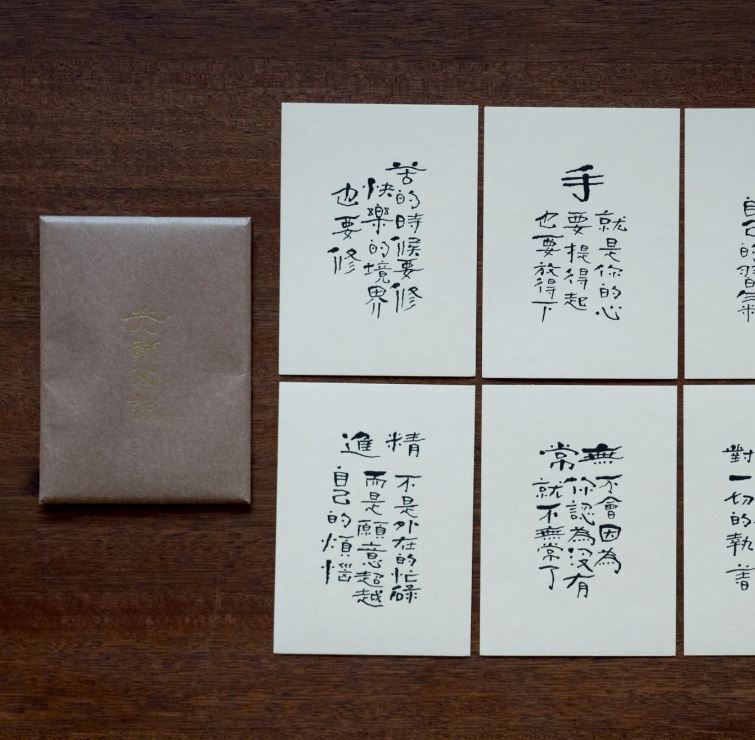 苦的時候要修
快樂的境界
也要修
手
就是你的心
要提得起
也要放得下
自己的習氣
精進
不是外在的忙碌
而是願意超越
自己的煩惱
無常
不會因為
你認為沒有
就不無常了
對
一切的執著